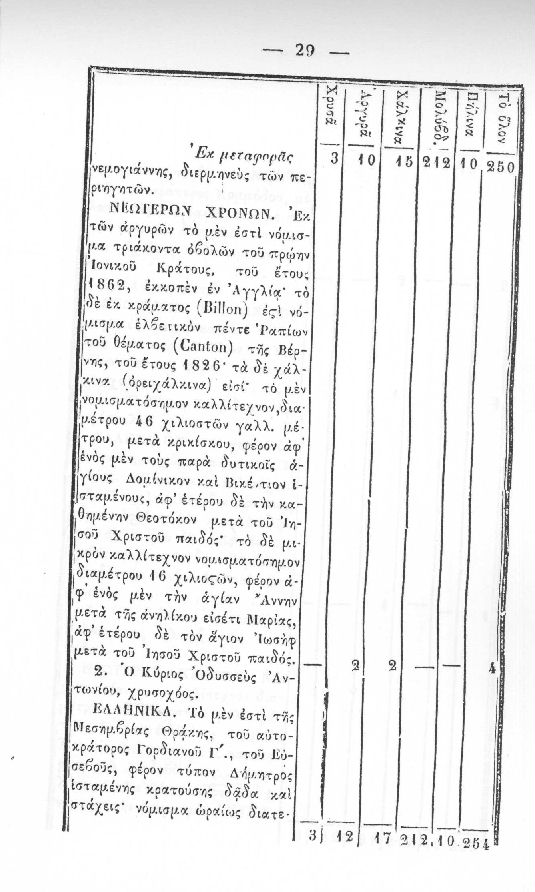 — 29 —
Χρυσᾶ Ἀργυρᾶ Χάλκινα Μολύβδ. Πήλινα Τὸ ὅλον
Ἐκ μεταφορᾶς 3 10 15 212 10 250
νεμογιάννης, διερμηνεὺς τῶν πε-
ριηγητῶν.
ΝΕΩΤΕΡΩΝ ΧΡΟΝΩΝ. Ἐκ
τῶν ἀργυρῶν τὸ μὲν ἐστὶ νόμισ-
μα τριάκοντα ὀβολῶν τοῦ πρῴην
Ἰονικοῦ Κράτους, τοῦ ἔτους
1862, ἐκκοπὲν ἐν Ἀγγλίᾳ· τὸ
δὲ ἐκ κράματος (Billon) ἐςὶ νό-
μισμα ἑλβετικὸν πέντε Ῥαπίων
τοῦ θέματος (Canton) τῆς Βέρ-
νης, τοῦ ἔτους 1826· τὰ δὲ χάλ-
κινα (ὀρειχάλκινα) εἰσί· τὸ μὲν
νομισματόσημον καλλίτεχνον, δια-
μέτρου 46 χιλιοστῶν γαλλ. μέ-
τρου, μετὰ κρικίσκου, φέρον ἀφ'
ἑνὸς μὲν τοὺς παρὰ δυτικοῖς ἁ-
γίους Δομίνικον καὶ Βικέντιον ἱ-
σταμένους, ἀφ' ἑτέρου δὲ τὴν κα-
θημένην Θεοτόκον μετὰ τοῦ Ἰη-
σοῦ Χριστοῦ παιδός· τὸ δὲ μι-
κρὸν καλλίτεχνον νομισματόσημον
διαμέτρου 16 χιλιοςῶν, φέρον ἀ-
φ' ἑνὸς μὲν τὴν ἁγίαν Ἄννην
μετὰ τῆς ἀνηλίκου εἰσέτι Μαρίας,
ἀφ' ἑτέρου δὲ τὸν ἅγιον Ἰωσὴφ
μετὰ τοῦ Ἰησοῦ Χριστοῦ παιδός. — 2 2 — — 4
2. Ὁ Κύριος Ὀδυσσεὺς Ἀν-
τωνίου, χρυσοχόος.
ΕΛΛΗΝΙΚΑ. Τὸ μὲν ἐστὶ τῆς
Μεσημβρίας Θρᾴκης, τοῦ αὐτο-
κράτορος Γορδιανοῦ Γ΄., τοῦ Εὐ-
σεβοῦς, φέρον τύπον Δήμητρος
ἱσταμένης κρατούσης δᾷδα καὶ
στάχεις· νόμισμα ὡραίως διατε-
3 12 17 212 10 254